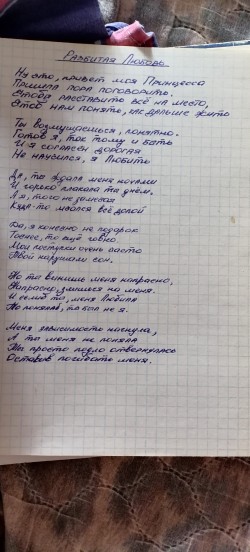 Разбитая Любовь
Ну это, привет моя Принцесса
Пришла пора поговорить,
Чтоб расставить всё на место,
Чтоб нам понять, как дальше жить
Ты возмущаешься, понятно.
Готов я, так тому и быть
И я согласен дорогая
Не научился, я Любить
Да, ты ждала меня ночами
И горько плакала ты днём.
А я, того не замечая
Куда-то мчался всё долой
Да, я конечно не подарок
то ещё говно.
Мои поступки очень часто
Твой нарушали сон.
Но ты винишь меня напрасно,
Напрасно злишься на меня.
И ты, меня Любила
Но поняла, то был не я.
Меня зависимость нагнула,
А ты меня не поняла
Ты просто подло отвернулась
Оставив погибать меня.